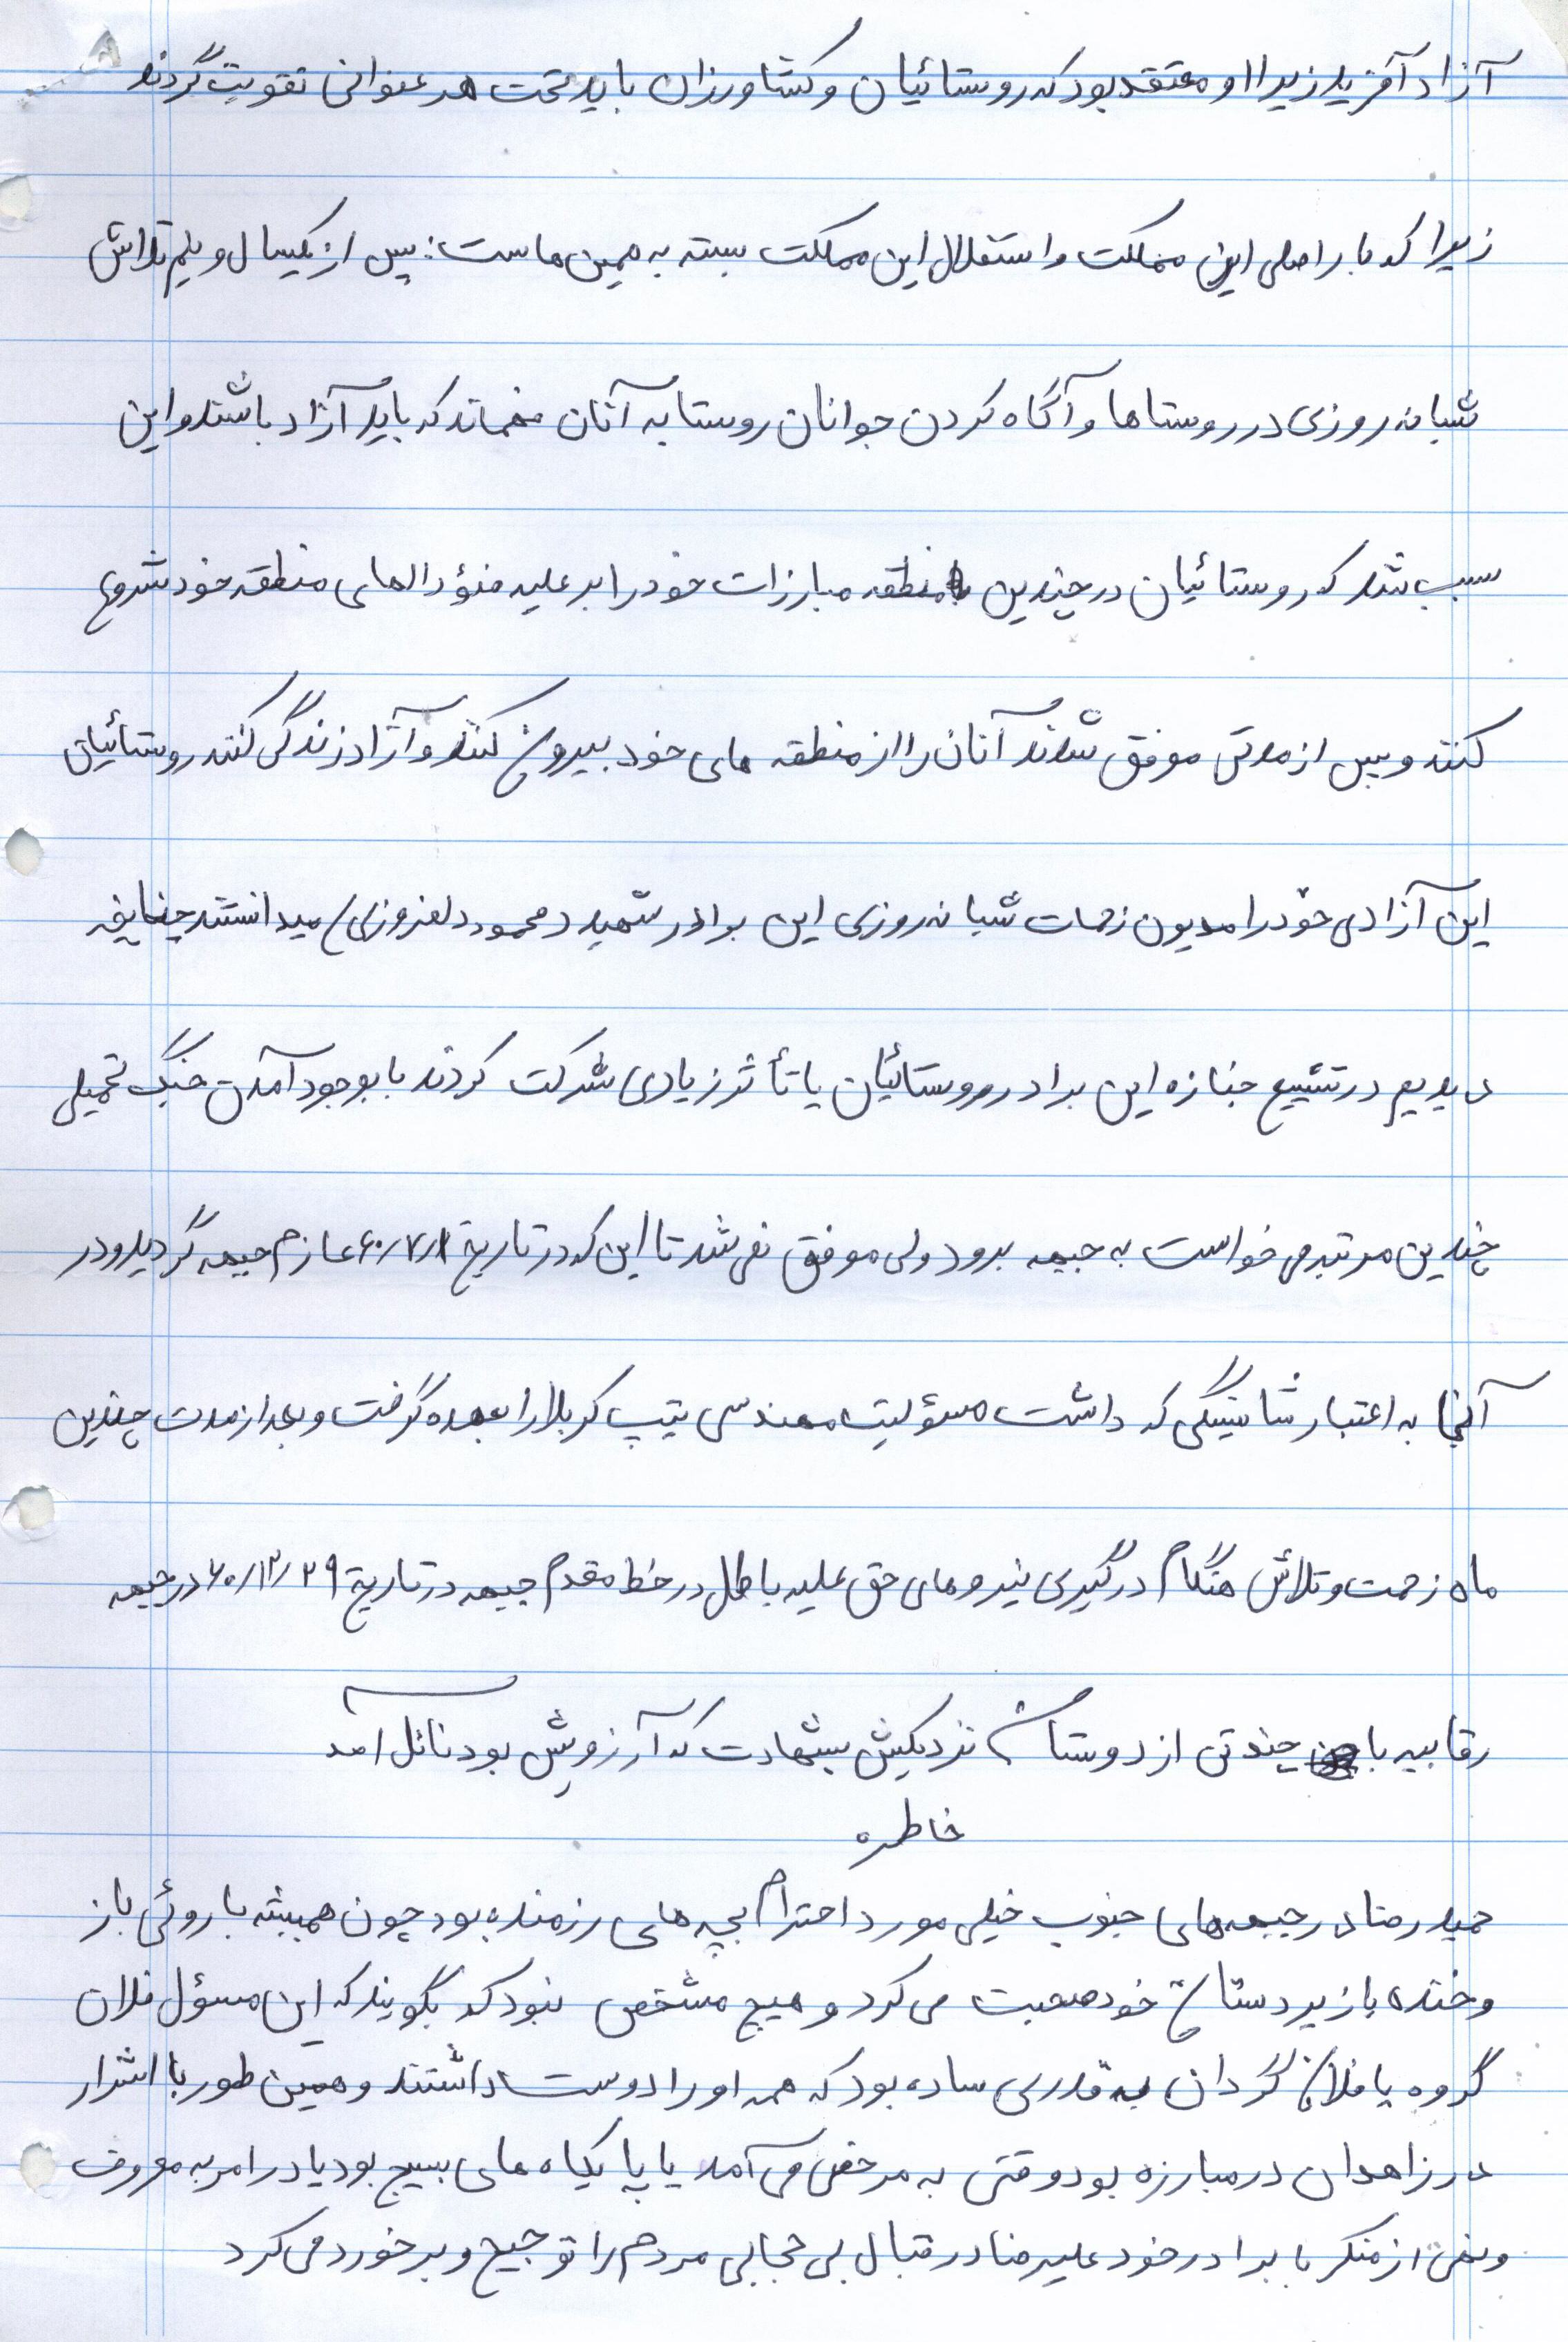 آزاد آفرید زیرا او معتقد بود که روستائیان و کشاورزان باید تحت هر عنوانی تقویت گردند
زیرا که بار اصلی این مملکت و استقلال این مملکت بسته به همین هاست: پس از یکسال و نیم تلاش
شبانه روزی در روستاها و آگاه کردن جوانان روستا به آنان فهماند که باید آزاد باشند و این
سبب شد که روستائیان در چندین منطقه مبارزات خود را بر علیه فئودالهای منطقه خود شروع
کنند و پس از مدتی موفق شدند آنان را از منطقه های خود بیرون کنند و آزاد زندگی کنند روستائیان
این آزادی خود را مدیون زحمات شبانه روزی این برادر شهید و محمود دلفروزی میدانستند چنانچه
دیدیم در تشییع جنازه این برادر روستائیان با تأثر زیادی شرکت کردند با بوجود آمدن جنگ تحمیلی
چندین مرتبه می خواست به جبهه برود ولی موفق نمی شد تا این که در تاریخ ۶۰/۷/۱ عازم جبهه گردید و در
آنجا به اعتبار شایستگی که داشت مسؤلیت مهندسی تیپ کربلا را بعهده گرفت و بعد از مدت چندین
ماه زحمت و تلاش هنگام درگیری نیروهای حق علیه باطل در خط مقدم جبهه در تاریخ ۶۰/۱۲/۲۹ در جبهه
رقابیه با چند تی از دوستان نزدیکش بشهادت که آرزویش بود نائل آمد
خاطره
حمید رضا در جبهه های جنوب خیلی مورد احترام بچه های رزمنده بود چون همیشه با روئی باز
و خنده با زیر دستان خود صحبت می کرد و هیچ مشخص نبود که بگویند که این مسؤل فلان
گروه یا فلان گردان به قدری ساده بود که همه او را دوست داشتند و همین طور با اشرار
در زاهدان در مبارزه بود وقتی به مرخصی می آمد یا پایگاه های بسیج بود یا در امر به معروف
و نهی از منکر با برادر خود علیرضا در قبال بی حجابی مردم را توجیح و برخورد می کرد